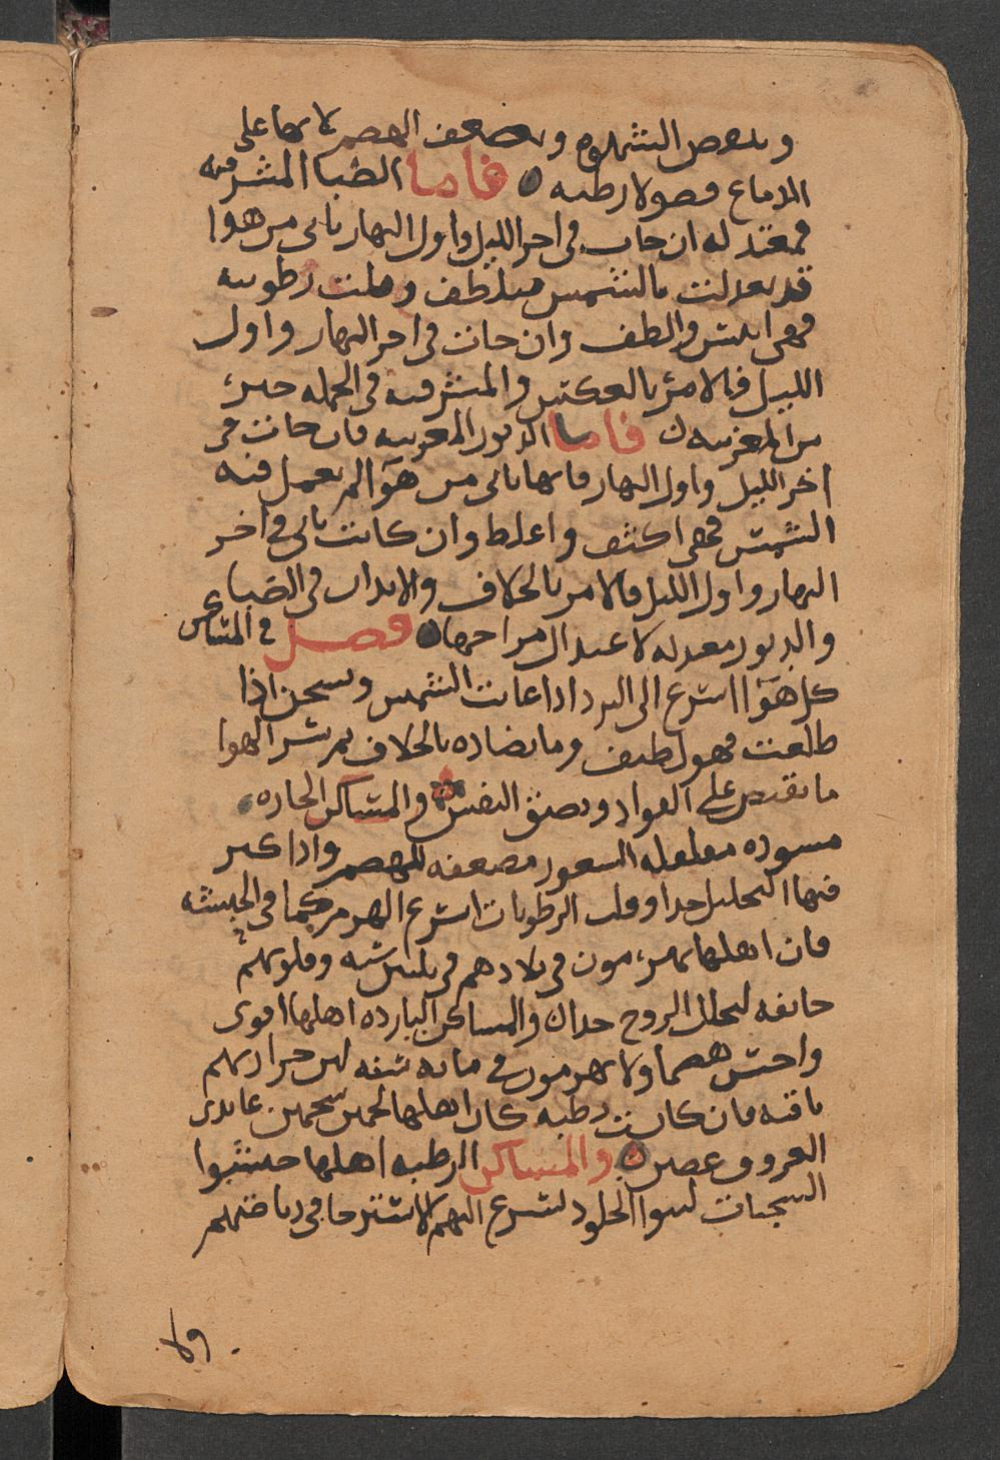 وينقص الشهوه ويضعف الهضم لانها على
الدماغ فضولا رطبه ه فاما الصبا المشرقيه
فمعتدله ان جات في اخر الليل واول النهار تاتي من هوا
قد تعدلت بالشمس فيلطف وقلت رطوبته
فهي ايبس والطف وان جات في اخر النهار واول
الليل فالامر بالعكس والمشرقيه في الجمله خير
من المغربيه ن فاما الدبور المغربيه فان جات في
اخر الليل واول النهار فانها تاتي من هوآ لم يعمل فيه
الشمس فهي اكثف واغلظ وان كانت تاتي في اخر
النهار واول الليل فالامر بالخلاف والابدان في الصبا
والدبور معدله لاعتدال مزاجها ه فصل في المساكن
كل هوآ اسرع الى البرد اذا غابت الشمس ويسخن اذا
طلعت فهو لطيف وما يضاده بالخلاف ثم شر الهوا
ما يقبض على الفواد ويضيق النفس والمساكن الحاره
مسوده مفلفله الشعور مضعفه للهضم واذا كثر
فيها التحليل جدا وقلت الرطوبات اسرع الهرم كما في الحبشه
فان اهلها يهرمون في بلادهم في ثلثين سنه وقلوبهم
خايفه لتحلل الروح جدا ن والمساكن البارده اهلها اقوى
واحسن هضما ولا يهرمون في مايه سنه لان حرارتهم
باقيه فان كانت رطبه كان اهلها لحمين شحمين غايري
العروق غضين ه والمساكن الرطبه اهلها حسنوا
السحنات لينوا الجلود يسرع اليهم الاسترخا في رياضتهم